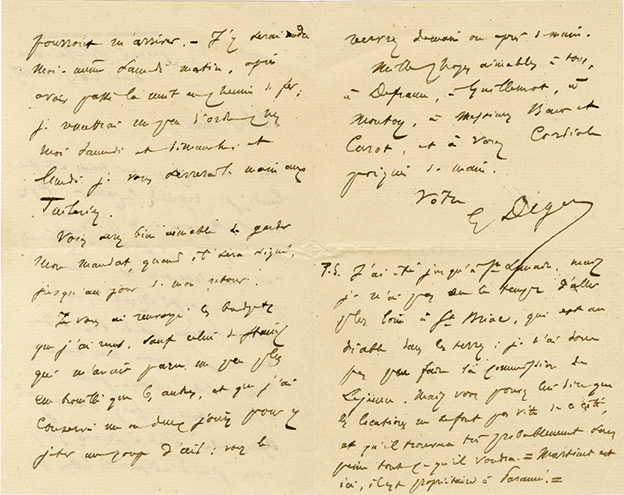 pourroient m'arriver. — J'y serai rendu
moi-même Samedi matin, après
avoir passé la nuit en chemin de fer;
je remettrai un peu d'ordre chez
moi Samedi et dimanche, et
lundi je vous serrerai la main aux
Tuileries.
Vous serez bien aimable de garder
mon mandat, quand il sera signé,
jusqu'au jour de mon retour.
Je vous ai renvoyé les budgets
que j'ai reçus, sauf celui de
qui m'avait paru un peu plus
embrouillé que les autres, et que j'ai
conservé un ou deux jours pour y
jeter un coup d'œil: vous le
recevrez demain ou après-demain.
Mille choses aimables à tous,
à Defrance, à Guillemot, à
Montoy, à Messieurs Baur et
Carot, et à vous cordiale
poignée de main.
Votre
P.S. J'ai été jusqu'à St Lunaire, mais
je n'ai pas eu le temps d'aller
plus loin à St Briac, qui est au
diable dans les terres; je n'ai donc
pas pu faire la commission de
Lejeune. Mais vous pouvez lui dire que
les locations ne se font pas vite de ce côté,
et qu'il trouvera très probablement sans
peine tout ce qu'il voudra. = Martinet est
ici, il est propriétaire à Paramé. =